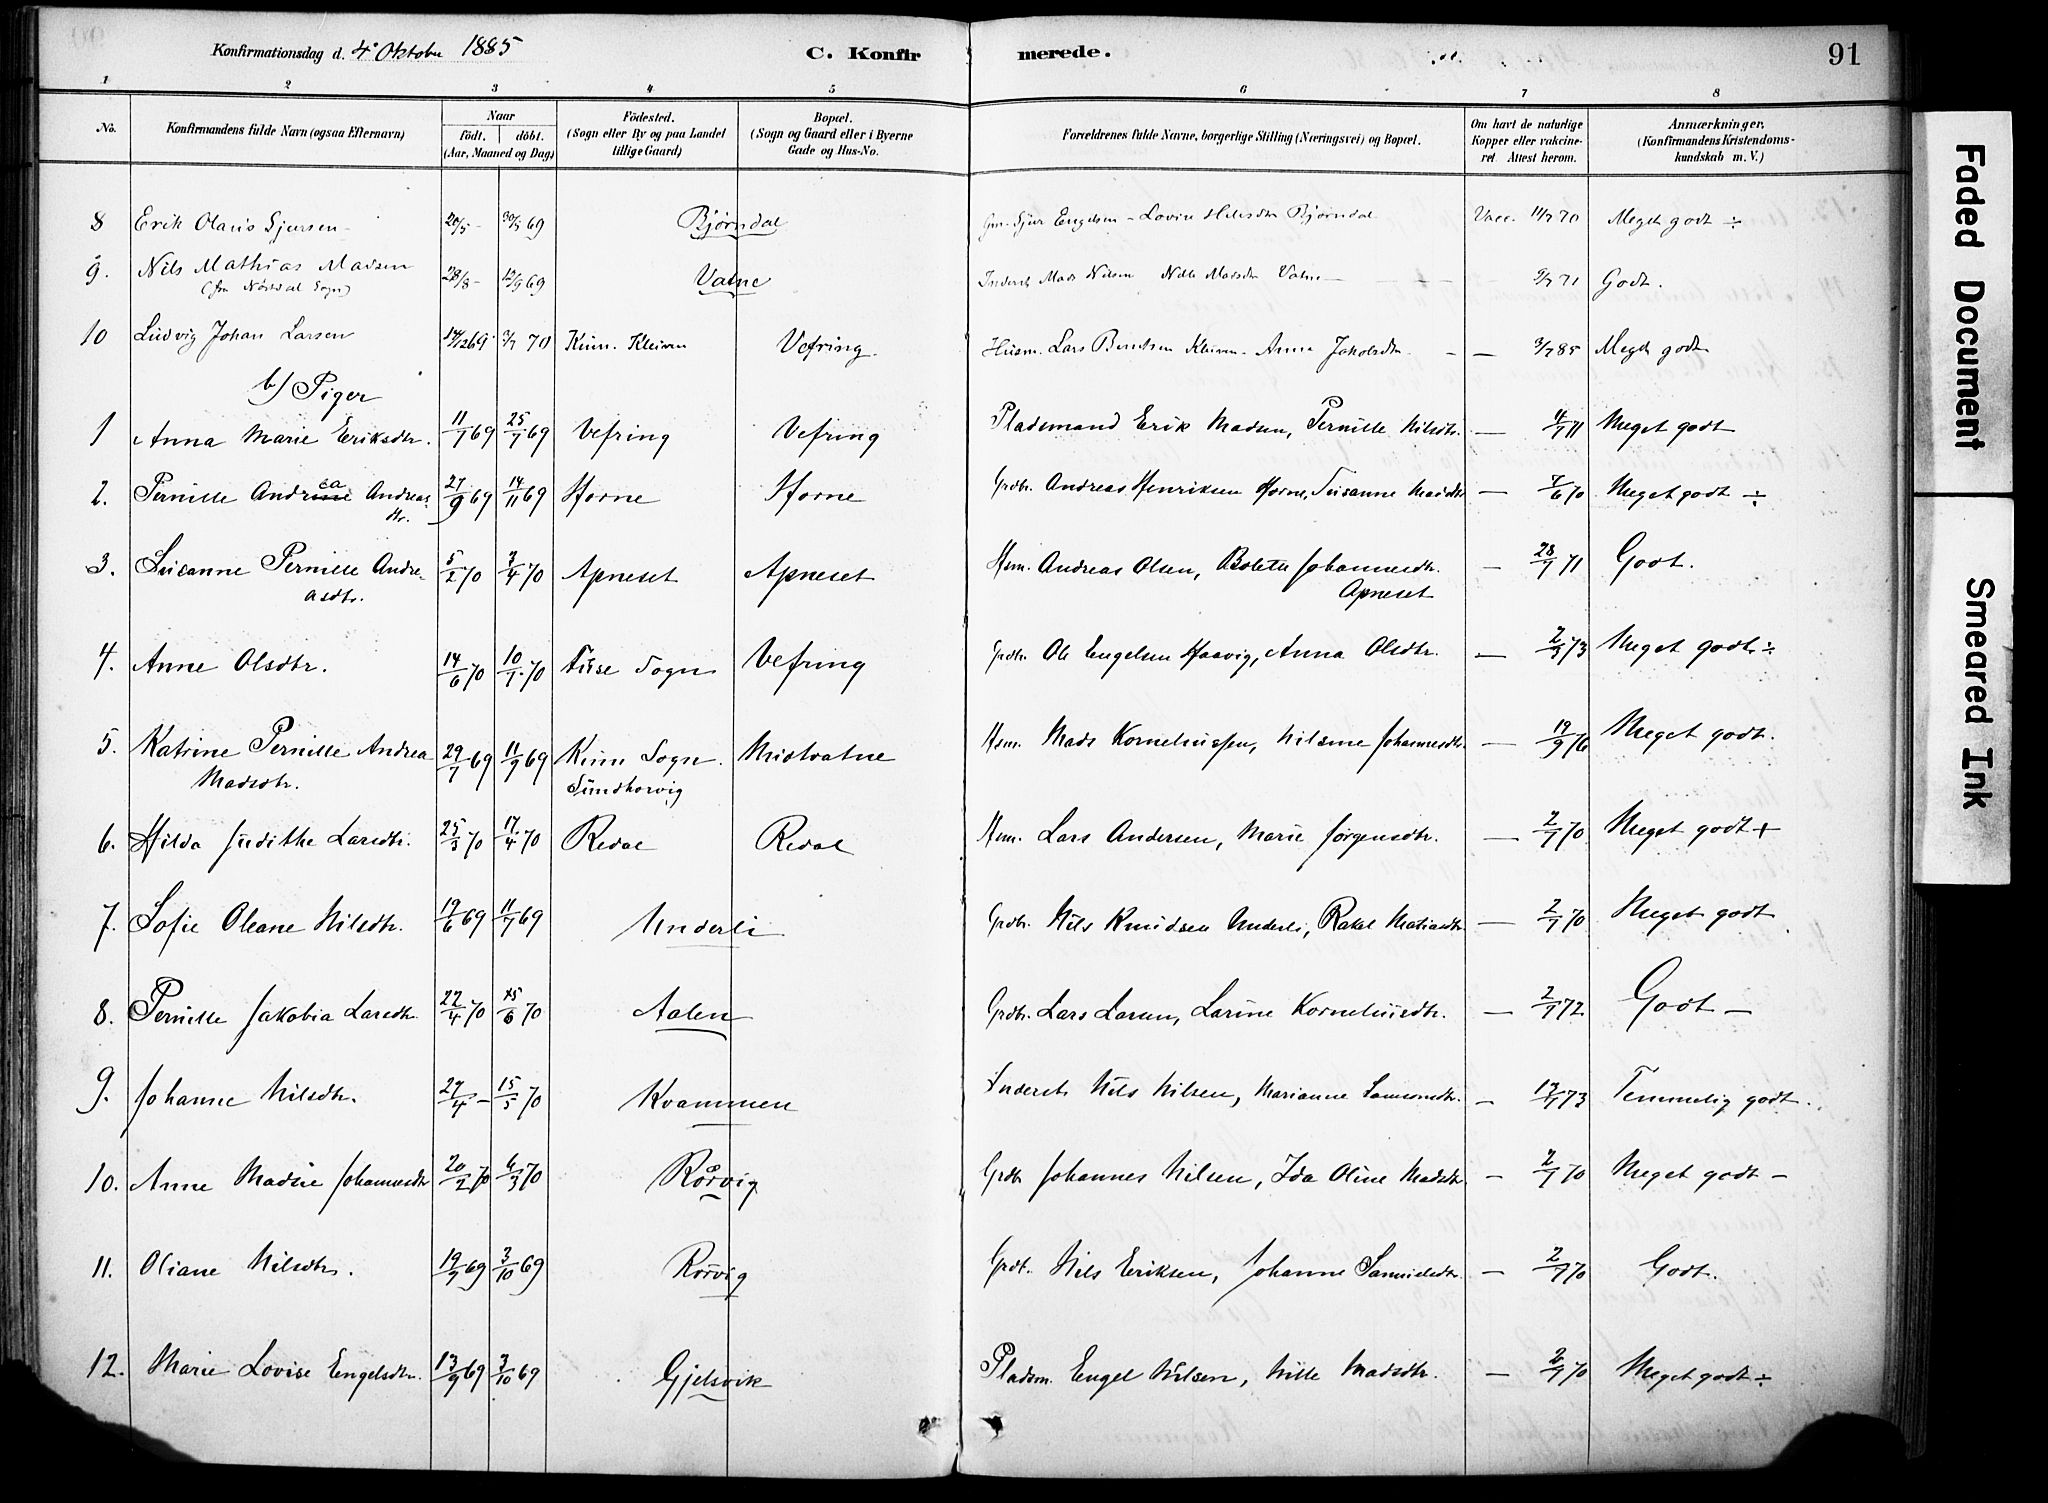 Konfirmationsdag d. 4º Oktober 1885
C. Konfirmerede.
91
1 2 3 4 5 6 7 8
No.
Konfirmandens fulde Navn (ogsaa Efternavn)
Naar
født. døbt.
(Aar, Maaned og Dag)
Födested.
(Sogn eller By og paa Landet tillige Gaard)
Bopæl.
(Sogn og Gaard eller i Byerne Gade og Hus-No.
Forældrenes fulde Navne, borgerlige Stilling (Næringsvei) og Bopæl.
Om havt de naturlige Kopper eller vakcineret. Attest herom.
Anmærkninger.
(Konfirmandens Kristendomskundskab m. V.)
8 Erik Olaus Sjursen 20/5 - 30/5 69 Bjørndal Gm. Sjur Engelsen - Lovise Bjørndal Vacc. 11/7 70 Meget godt ÷
9. Nils Mathias Madsen 28/8 - 12/9 69 Vatne Inderst Mads Nilsen Nille Madsdtr Vatne - 9/7 71 Godt.
(fra Nøstdal Sogn)
10 Ludvig Johan Larsen 14/12 69 3/7 70 Kinn. Kleiven Vefring Husm. Lars Berntsen Kleiven - Anne Jakobsdtr. - 3/7 85 Meget godt
b/ Piger
1 Anna Marie Eriksdtr. 11/7 69 25/7 69 Vefring Vefring Pladsmand Erik Madsen, Pernille Nilsdtr. - 4/7 71 Meget godt
2. Pernille Andrea Andreasdtr. 27/9 69 14/11 69 Horne Horne Grdbr. Andreas Henriksen Horne, Susanne Madsdtr - 7/6 70 Meget godt ÷
3. Susanne Pernille Andreasdtr. 5/2 70 3/4 70 Apneset Apneset Hsm. Andreas Olsen, Bolette Johannesdtr. Apneset - 28/7 71 Godt.
4. Anne Olsdtr. 14/6 70 10/7 70 Füse Sogn Vefring Grdbr. Ole Engelsen Haavig, Anna Olsdtr. - 2/5 73 Meget godt ÷
5. Katrine Pernille Andrea Madsdtr. 29/7 69 11/9 69 Kinn Sogn. Midtvatne Hsm. Mads Korneliussen, Nilsine Johannesdtr. - 19/9 76 Meget godt.
6. Hilda Judithe Larsdtr. 25/3 70 17/4 70 Redal Redal Hsm. Lars Andersen, Marie Jørgensdtr. - 2/7 70 Meget godt +
7. Sofie Oleane Nilsdtr. 19/6 69 11/7 69 Underli Grdbr. Nils Knudsen Underli, Rakel Matiasdtr - 2/7 70 Meget godt
8. Pernille Jakobia Larsdtr. 22/4 70 15/6 70 Aalen Grdbr. Lars Larsen, Larine Korneliusdtr. - 2/7 72 Godt -
9. Johanne Nilsdtr. 27/4 - 15/5 70 Kvammen Inderst Nils Nilsen, Marianne Samsonsdtr. - 13/7 73 Temmelig godt.
10. Anne Madsie Johannesdtr 20/2 70 6/3 70 Rørvig Grdbr Johannes Nilsen, Ida Oline Madsdtr. - 2/7 70 Meget godt -
11. Oliane Nilsdtr. 19/9 69 3/10 69 Rørvig Grdb. Nils Eriksen, Johanne Samuelsdtr. - 2/7 70 Godt.
12. Marie Lovise Engelsdtr. 13/9 69 3/10 69 Gjelsvik Pladsm. Engel Nilsen, Nille Madsdtr. - 2/7 70 Meget godt ÷
Faded Document
Smeared Ink